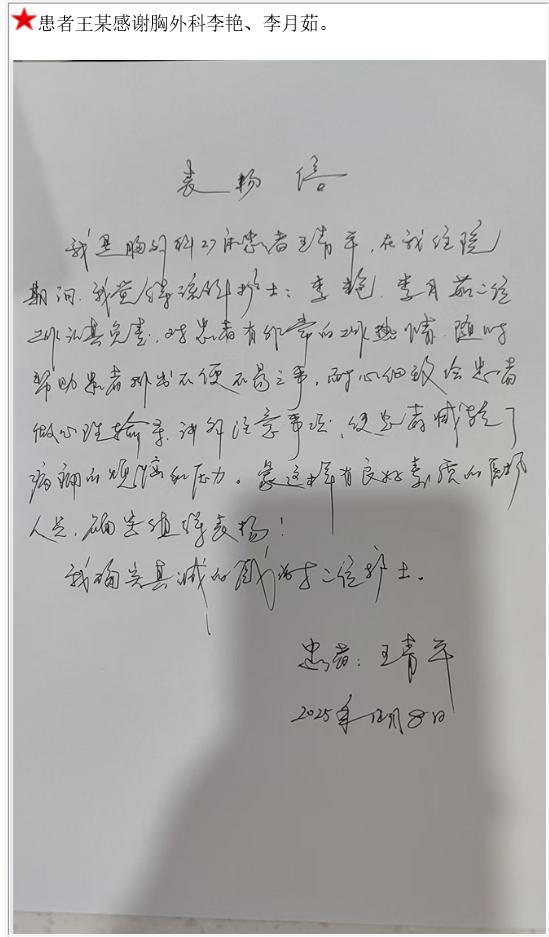 患者王某感谢胸外科李艳、李月茹。
表扬信
我是胸外科27床患者王青平,在我住院
期间,我觉得该科护士:李艳、李月茹二位
工作认真负责,对患者有非常的工作热情,随时
帮助患者排出不便不易之事,耐心细致给患者
做心理输导,讲解注意事项,使患者减轻了
病痛的烦恼和压力。象这样有良好素质的医护
人员,确实值得表扬!
我确实真诚的感谢二位护士。
患者:王青平
2025年12月8日